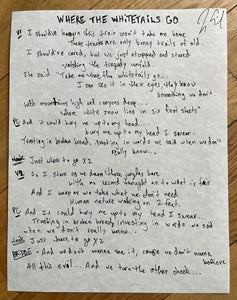 WHERE THE WHITETAILS GO
V1 I shoulda known this train won't take me home
These tracks are only boney trails of old.
I should've cared, but we just stopped and stared
watching the tragedy unfold
She said "Take me where the whitetails go...
I can see it in their eyes, they know
something we don't.
With mountains high and canyons deep...
where white snow lies in six foot sheets"
PC And it could bury me up to my head...
bury me up to my head I swear -
Trusting in broken bread, investing in words we said when we don't
really know...
Hook Just where to go X2
V2 So, I stare up as these jungles bare
with no second thought as to what is fair.
And I weep as we take what we don't need
Human nature walking on 2 feet.
PC And it could bury me up to my head I swear...
Trusting in broken bread investing in words we said
when we don't really know...
Hook Just where to go X2
BRIDGE - And we don't wanna see it, cause we don't wanna
believe
All this evil... And we turn the other cheek...